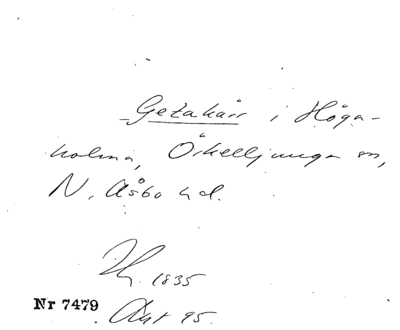 Getakärr i Höga-
holma, Örkelljunga sn,
N. Åsbo hd.
1835
Nr 7479
Akt 95.